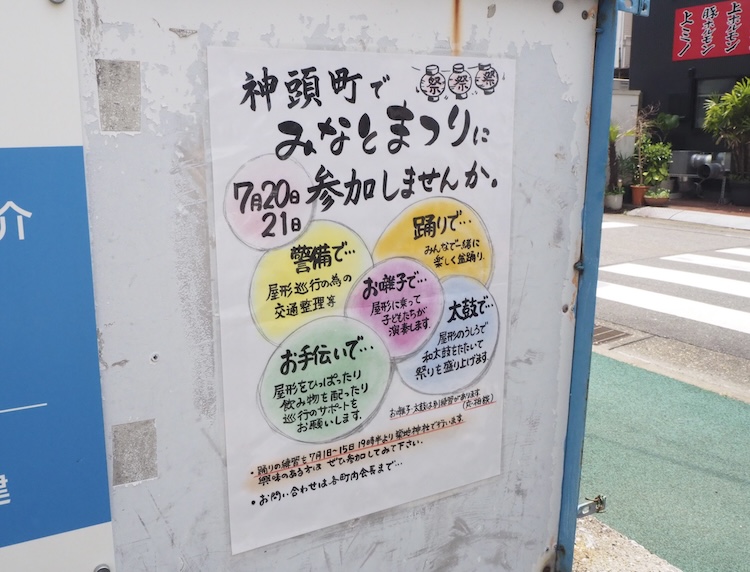 神頭町で
祭 祭 祭
みなとまつりに
7月20日
21日
参加しませんか。
警備で…
屋形巡行の為の
交通整理等
踊りで…
みんなで一緒に
楽しく盆踊り.
お囃子で…
屋形に乗って
子どもたちが
演奏します.
太鼓で…
屋形のうしろで
和太鼓をたたいて
祭りを盛り上げます.
お手伝いで…
屋形をひっぱったり
飲み物を配ったり
巡行のサポートを
お願いします.
お囃子・太鼓は別練習があります
・踊りの練習を7月1日~15日 19時半より築地神社で行います.
興味のある方は ぜひ参加してみて下さい。
・お問い合わせは各町内会長まで…
介
建
上ホルモン
豚ホルモン
上ミノ